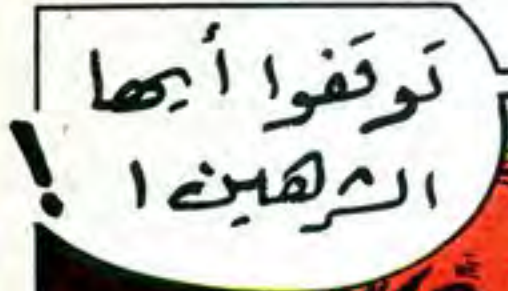 توقفوا أيها
الشرهين !
!